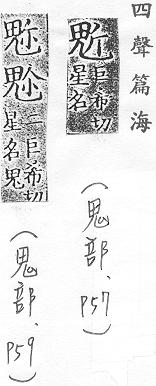 四聲篇海
巨希切
星名
(鬼部、P57)
二巨希切
星名鬼
(鬼部、P59)